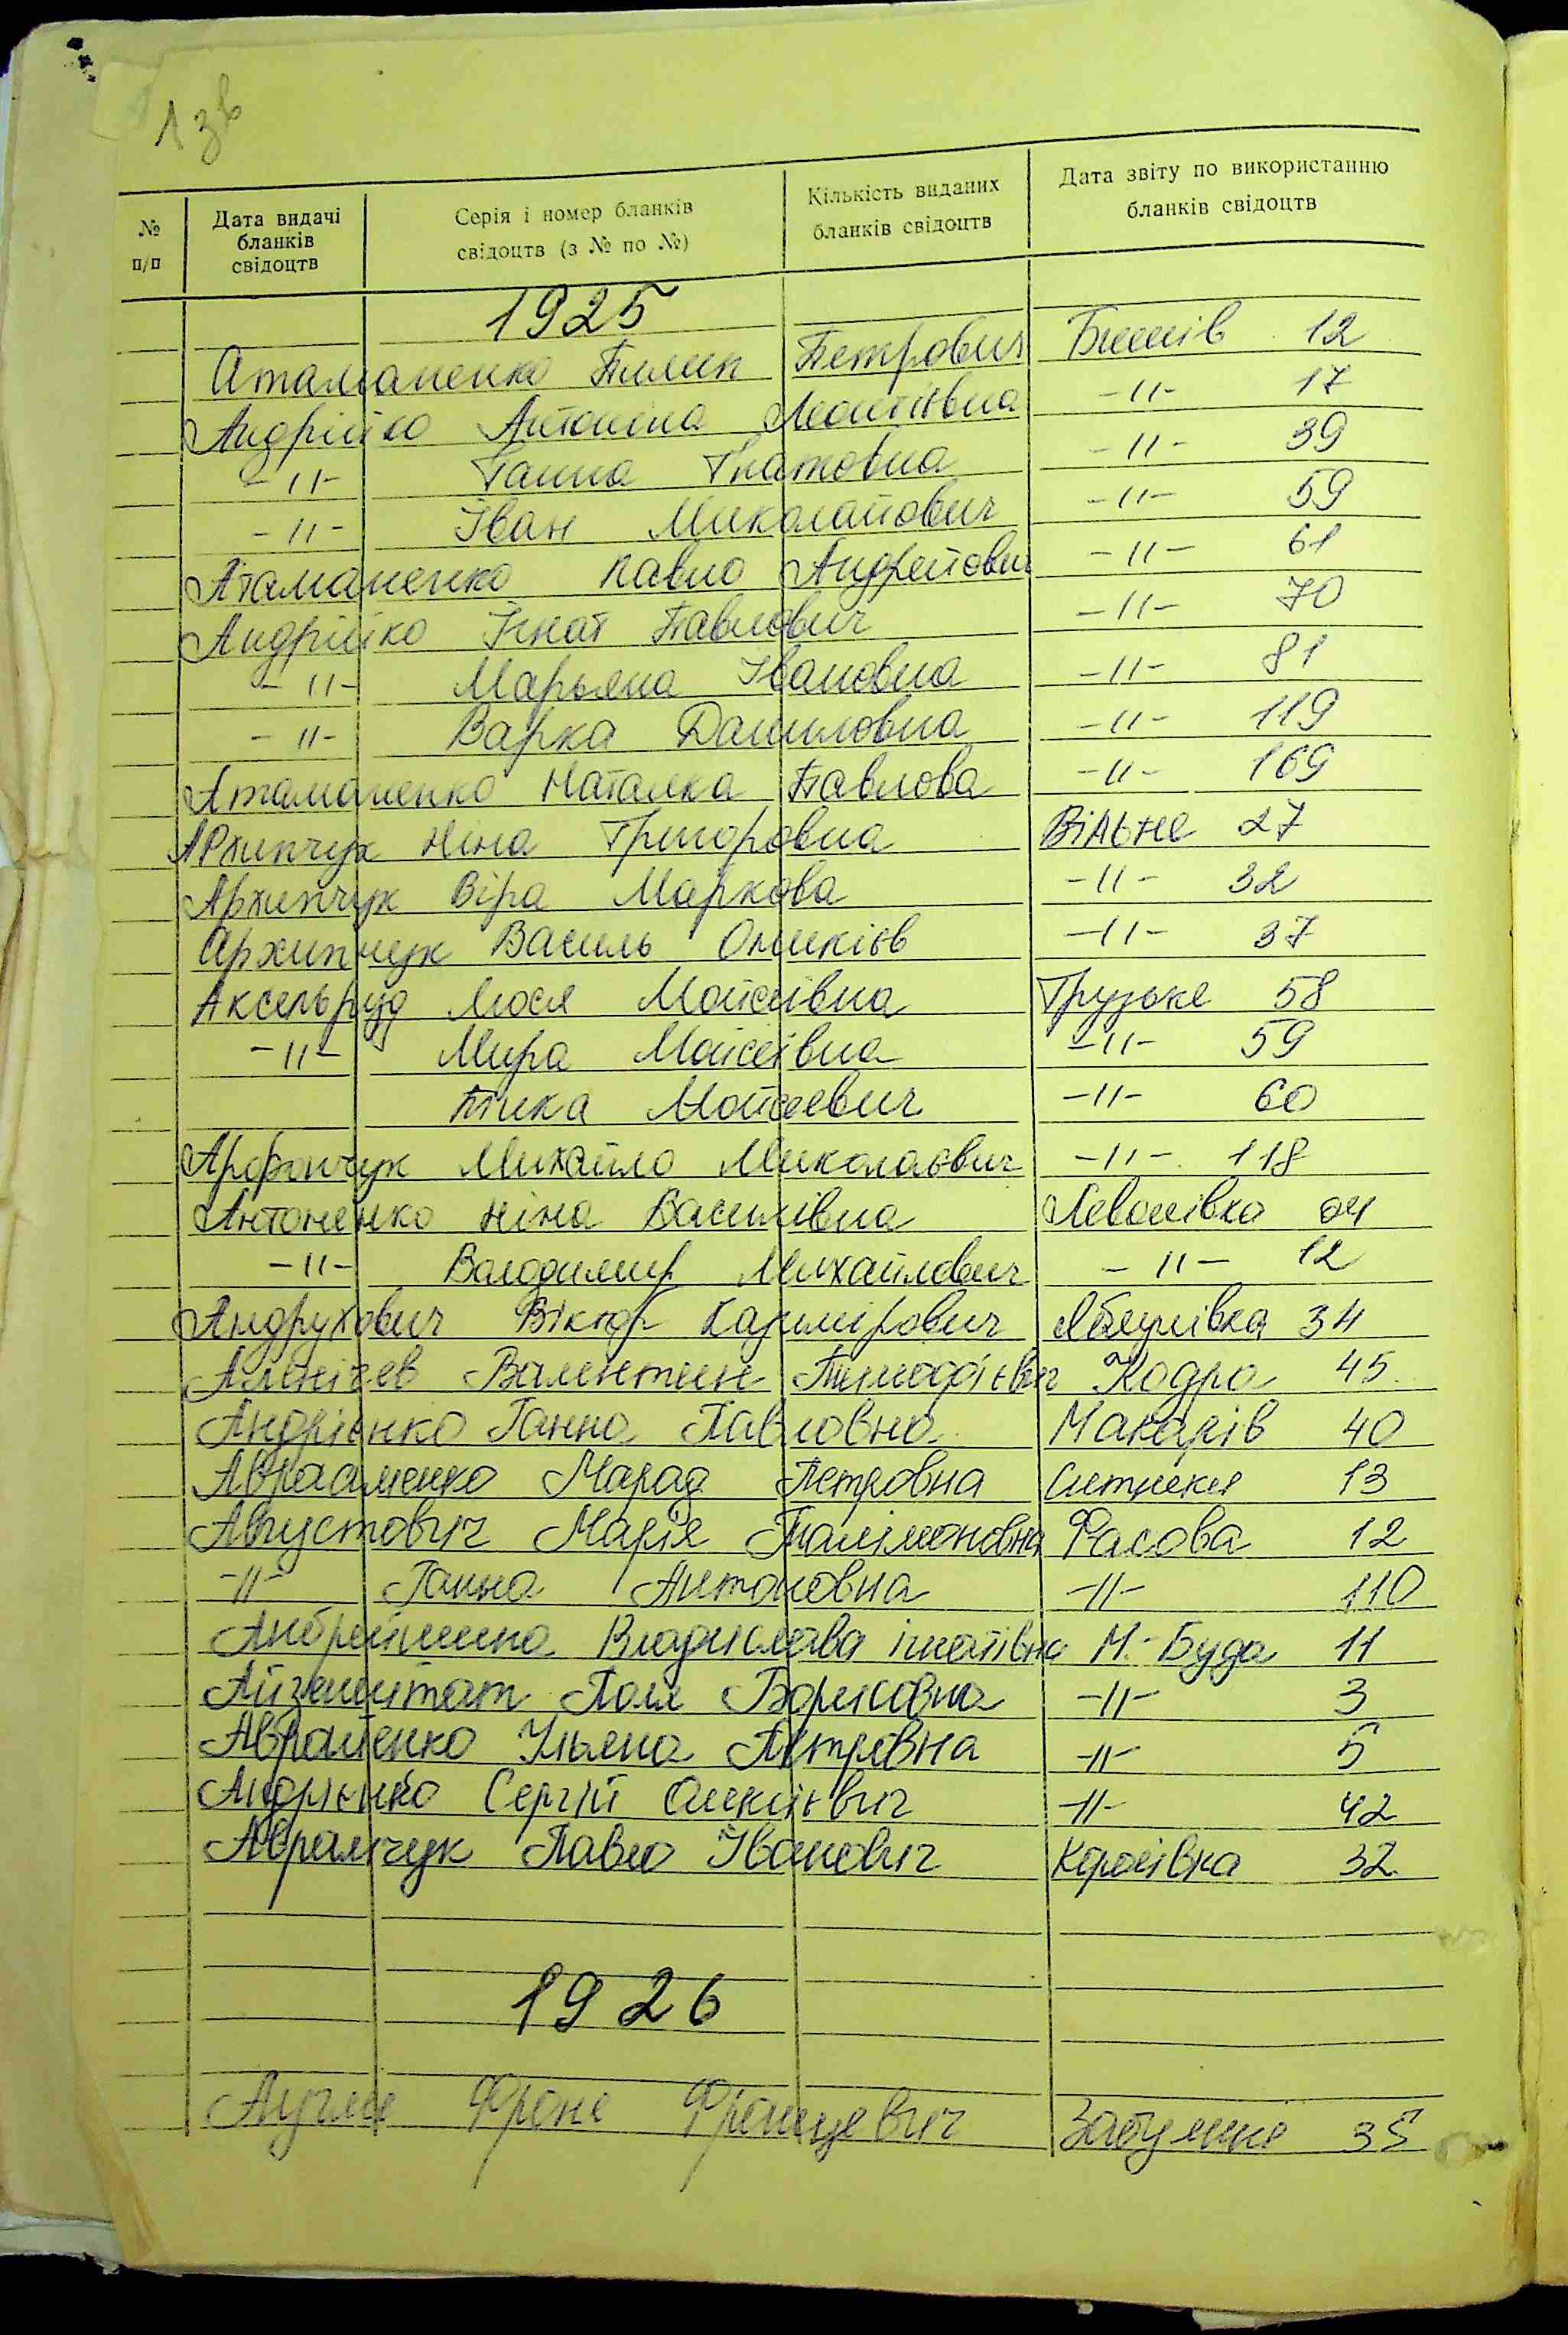 1 зв
№ п/п
Дата видачі бланків свідоцтв
Серія і номер бланків свідоцтв (з № по №)
Кількість виданих бланків свідоцтв
Дата звіту по використанню бланків свідоцтв
1925
Атаманенко Пилип Петрович Бишів 12
Андрійко Антоніна Леонтіївна -11- 17
-11- Ганна Гнатовна -11- 39
-11- Іван Миколайович -11- 59
Атаманенко Павло Андрейович -11- 61
Андрійко Ігнат Павлович -11- 70
-11- Марьяна Івановна -11- 81
-11- Варка Даниловна -11- 119
Атаманенко Наталка Павлова -11- 169
Архипчук Ніна Григоровна Вільне 27
Архипчук Віра Маркова -11- 32
Архипчук Василь -11- 37
Аксельруд Люся Мойсеівна Грузьке 58
-11- Мира Мойсеівна -11- 59
Мойсеевич -11- 60
Михайло Миколаєвич -11- 118
Антоненко Ніна Василівна Леонівка 04
-11- Володимир Михайлович -11- 12
Андрухович Віктор Казимірович 34
Валентин Кодра 45
Андрієнко Ганна Павловна Макарів 40
Авраменко Петровна Ситняки 13
Августович Марія Фасова 12
-11- Ганна Антоновна -11- 110
Владислава М-Буда 11
Поля Борисовна -11- 3
Авраменко Ульяна Петрівна -11- 5
Андрієнко Сергій -11- 42
Аврамчук Павло Іванович Королівка 32
1926
Франс Францевич Забуяння 35